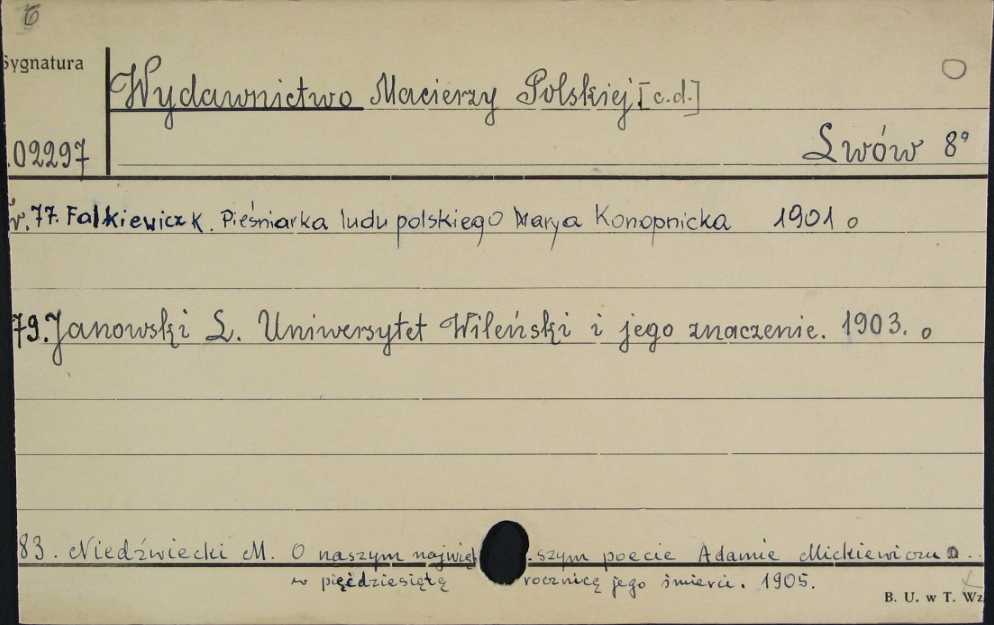 6
Sygnatura
Wydawnictwo Macierzy Polskiej. [c.d.]
.02297
Lwów 8°
77. Falkiewicz K. Pieśniarka ludu polskiego Marya Konopnicka 1901 o
79. Janowski L. Uniwersytet Wileński i jego znaczenie. 1903. o
83. Niedźwiecki M. O naszym najwięk szym poecie Adamie Mickiewiczu
w pięćdziesiątą rocznicę jego śmierci. 1905.
B. U. w T. Wz